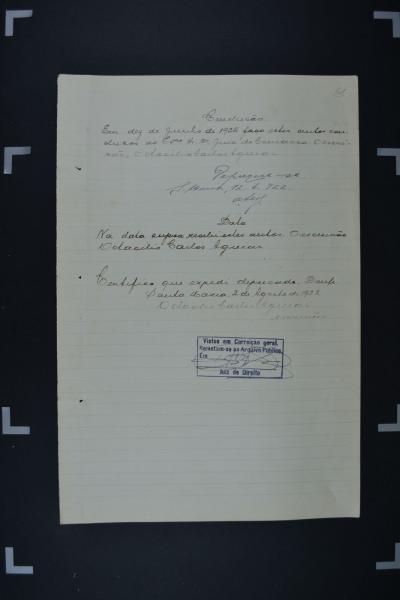 Conclusão
Em dez de Junho de 1922 faço estes autos con-
clusos ao Exmo Sr. Dr. Juiz de Comarca. O escri-
vão, Octacilio Carlos Aguiar
S. Maria, 12. 6. 922.
Data
Na data supra recebi estes autos. O escrivão
Octacilio Carlos Aguiar
Certifico que expedi deprecada. Dou fé.
Santa Maria, 2 de Agosto de 1922
Octacilio Carlos Aguiar
escrivão
Vistos em Correição geral.
Remetam-se ao Arquivo Público
Em
Juiz de Direito